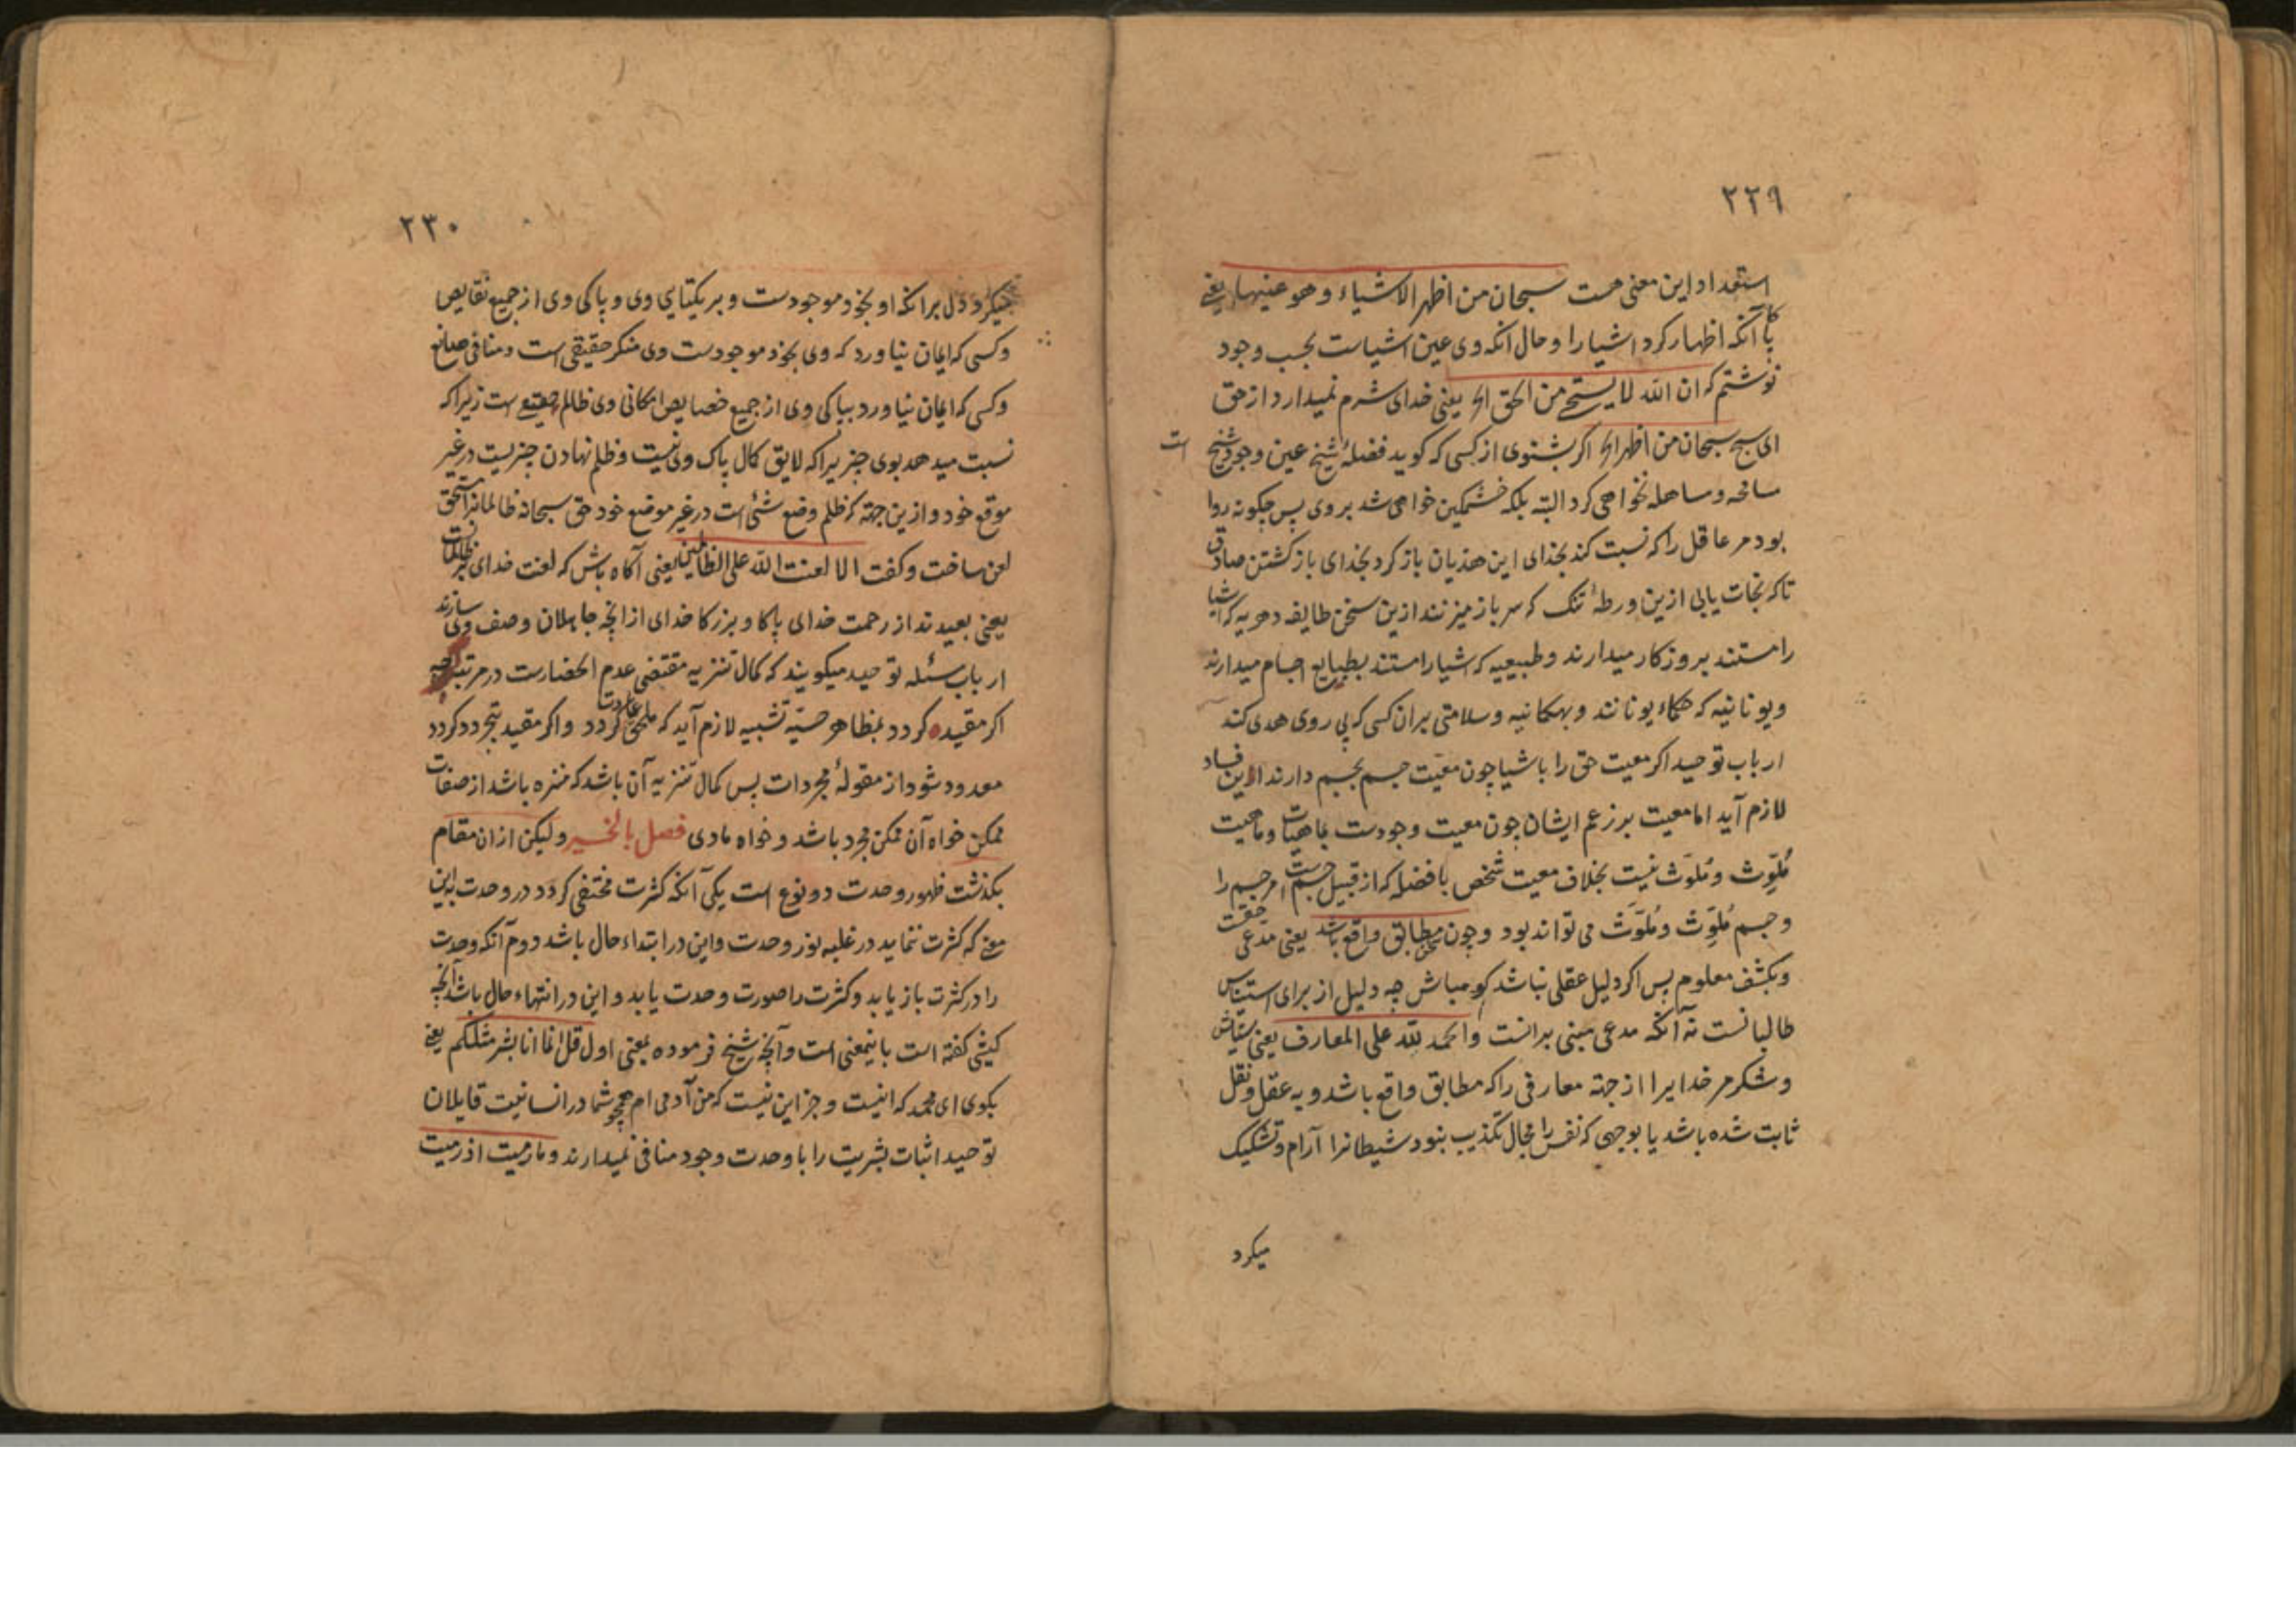 ۲۲۹
استعداد این معنی هست سبحان من اظهر الاشیاء و هو عینها یعنی
پاکا آنکه اظهار کرد اشیا را و حال آنکه وی عین اشیاست بحسب وجود
نوشتم که ان الله لا یستحیی من الحق الخ یعنی خدای شرم نمیدارد از حق
سبحان من اظهر الخ اگر بشنوی از کسی که کوید فضلهٔ شیخ عین وجود شیخ است
مسامحه و ساهله نخواهی کرد البته بلکه خشمکین خواهی شد بر وی پس چکونه روا
بود مر عاقل را که نسبت کند بخدای این هذیان باز کرد بخدای باز کشتن صادق
تا که نجات یابی ازین ورطهٔ تنک که سر باز میزنند ازین سخن طایفه دهریه که اشیا
را مستند بروزکار میدارند و طبیعیه که اشیا را مستند بطبایع اجسام میدارند
و یونانیه که حکماء یونانند و سلامتی بر آن کسی که پی روی هدی کند
ارباب توحید اگر معیت حق را باشیا چون معیّت جسم بجسم دارند این فساد
لازم آید اما معیت بر زعم ایشان چون معیت وجودست بماهیات و ماهیت
مُلوِّث و مُلوَّث نیست بخلاف معیت شخص با فضله که از قبیل جسمست مر جسم را
و جسم مُلوِّث و مُلوَّث می تواند بود و چون مطابق واقع باشد یعنی مدعی حقست
و بکشف معلوم پس اگر دلیل عقلی نباشد کو مباش چه دلیل از برای استیناس
طالبانست نه آنکه مدعی مبنی برانست والحمد لله علی المعارف یعنی ستایش
و شکر مر خدایرا از جهة معارفی را که مطابق واقع باشد و به عقل و نقل
ثابت شده باشد یا بوجهی که نفس را مجال تکذیب نبود شیطانرا آرام و تشکیک
میکرد
۲۳۰
میکرد دل بر انکه او بخود موجودست و بر یکتایی وی و پاکی وی از جمیع نقایص
و کسی که ایمان نیاورد که وی بخود موجودست وی منکر حقیقی است و منافی صانع
و کسی که ایمان نیاورد بپاکی وی از جمیع خصایص امکانی وی ظالم حقیقی است زیرا که
نسبت میدهد بوی چیزیرا که لایق کمال پاک وی نیست و ظلم نهادن چیزیست در غیر
موقع خود و ازین جهة که ظلم وضع شئ است در غیر موضع خود حق سبحانه ظالمانرا مستحق
لعن ساخت و کفت الا لعنت الله علی الظالمین یعنی آکاه باش که لعنت خدای بر ظالمانست
یعنی بعیدند از رحمت خدای پاکا و بزرکا خدای از انچه جاهلان وصف وی سازند
ارباب سئله توحید میکویند که کمال تنزیه مقتضی عدم انحصارست در مرتبه چه
اگر مقید کردد بمظاهر حسیّه تشبیه لازم آید که ملحق کردد و اگر مقید بتجرد کردد
معدود شود از مقولهٔ مجردات پس کمال تنزیه آن باشد که منزه باشد از صفات
ممکن خواه آن ممکن مجرد باشد و خواه مادی فصل بالخیر و لیکن ازان مقام
بکذشت ظهور وحدت دو نوع است یکی آنکه کثرت مختفی کردد در وحدت باین
معنی که کثرت ننماید در غلبه نور وحدت و این در ابتداء حال باشد دوم آنکه وحدت
را در کثرت باز یابد و کثرت را صورت وحدت یابد و این در انتهاء حال باشد آنچه
کیشی کفته است باینمعنی است و آنچه شیخ فرموده بمعنی اول قل انما انا بشر مثلکم یعنی
بکوی ای محمد که اینست و جز این نیست که من آدمی ام همچو شما در انسانیت قایلان
توحید اثبات بشریت را با وحدت وجود منافی نمیدارند و ما رمیت اذ رمیت